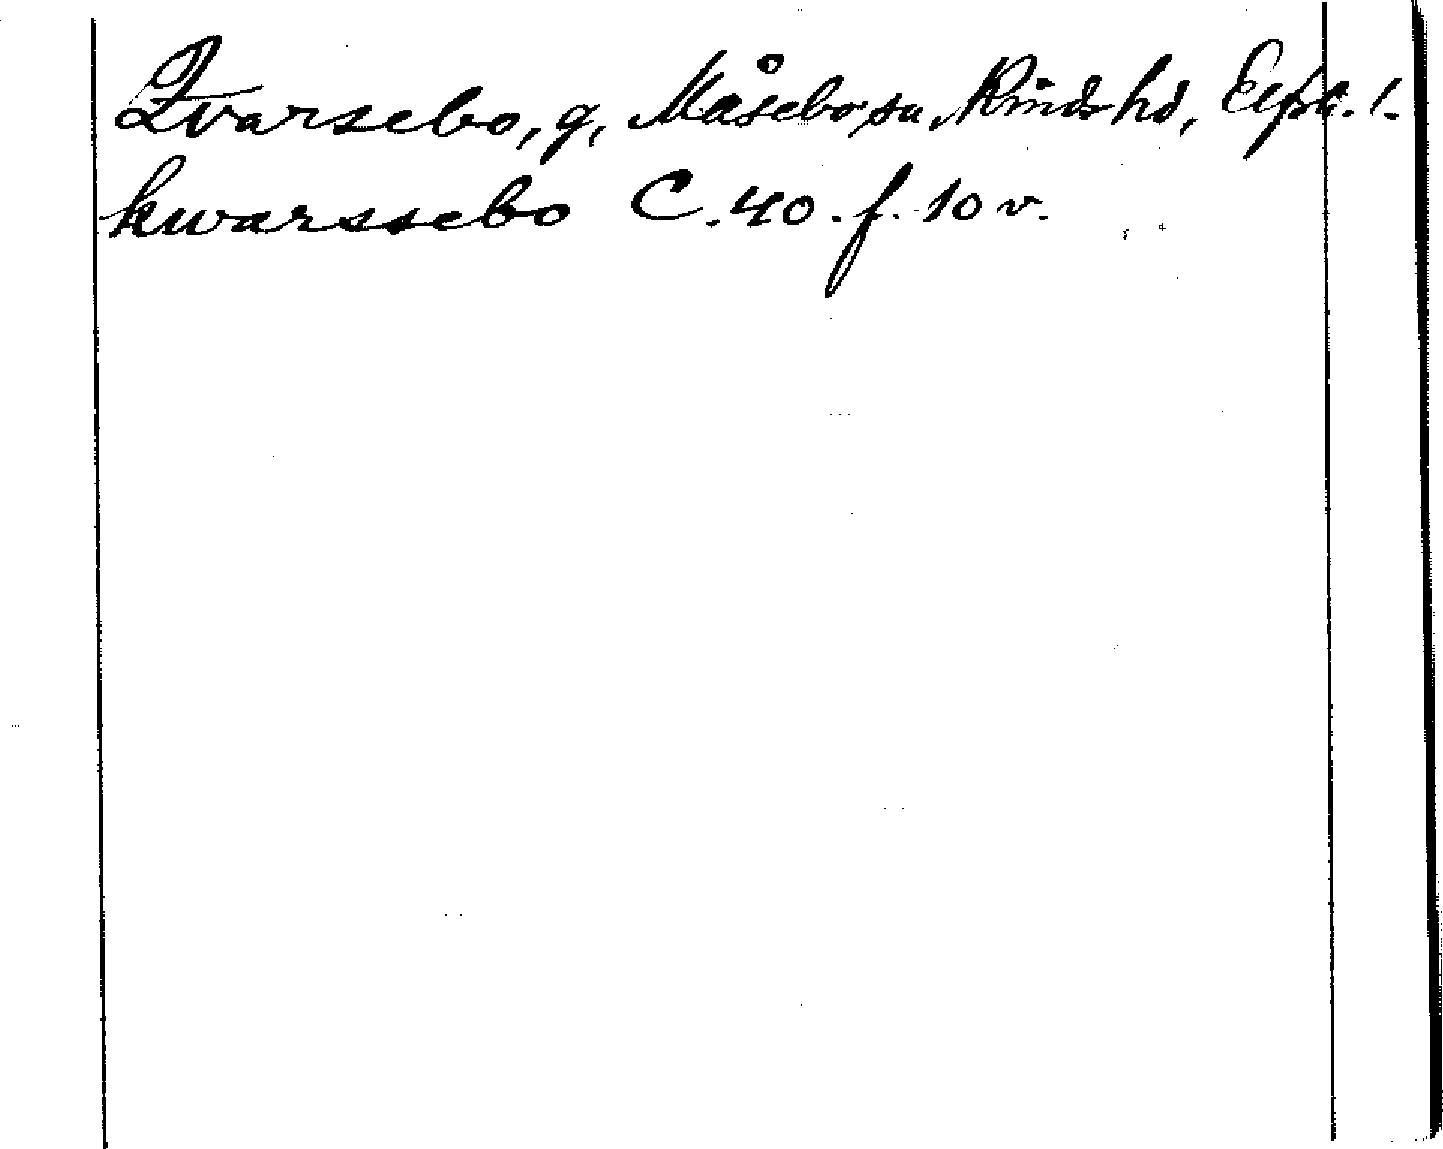 Qvarsebo, g, Måsebo sn, Kinds hd, Elfsb. l.
kwarssebo C. 40. f. 10 v.